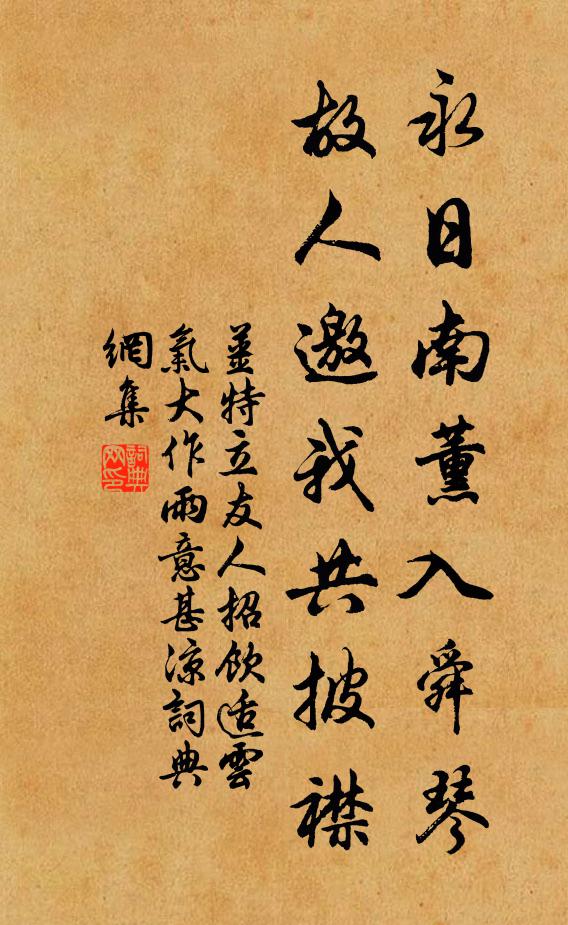 永日南薰入舜琴
故人邀我共披襟
姜特立友人招飲適雲
氣大作雨意甚涼詞典
網集
詞典
网印